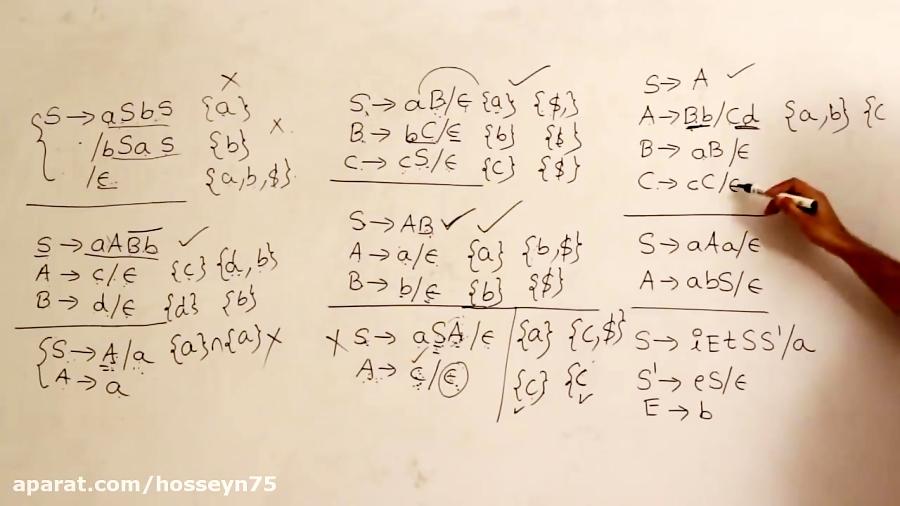 ×
S → aSbS {a}
/bSaS {b} ×
/ϵ {a,b,$}
S → aABb ✓
A → c/ϵ {c} {d,b}
B → d/ϵ {d} {b}
S → A/a {a}∩{a} ×
A → a
S → aB/ϵ {a} {$,} ✓
B → bC/ϵ {b} {$}
C → cS/ϵ {c} {$}
S → AB ✓ ✓
A → a/ϵ {a} {b,$}
B → b/ϵ {b} {$}
× S → aSA/ϵ {a} {c,$}
A → c/ϵ {c} {c
S → A ✓
A → Bb/Cd {a,b} {c
B → aB/ϵ
C → cC/ϵ
S → aAa/ϵ
A → abS/ϵ
S → iEtSS'/a
S' → eS/ϵ
E → b
aparat.com/hosseyn75